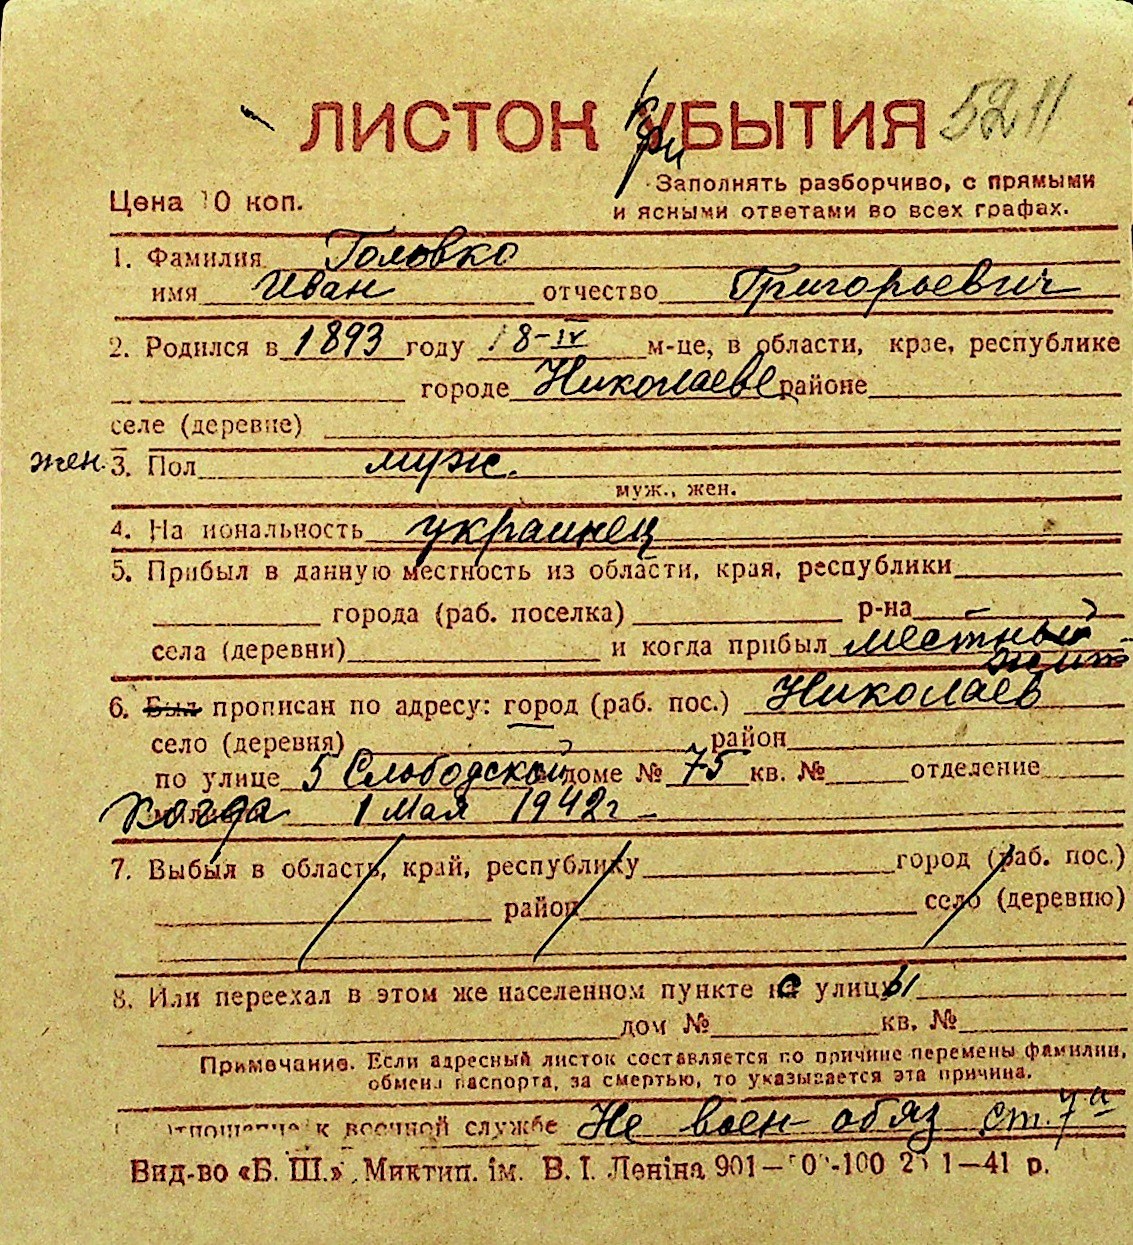 ЛИСТОК при УБЫТИЯ 5211
Цена 10 коп.
Заполнять разборчиво, с прямыми
и ясными ответами во всех графах.
1. Фамилия Головко
имя Иван отчество Григорьевич
2. Родился в 1893 году 18-IV м-це, в области, крае, республике
городе Николаеве районе
селе (деревне)
жен. 3. Пол муж.
муж., жен.
4. Национальность украинец
5. Прибыл в данную местность из области, края, республики
города (раб. поселка) р-на
села (деревни) и когда прибыл местный
жит
6. Был прописан по адресу: город (раб. пос.) Николаев
село (деревня) район
по улице 5 Слободской доме № 75 кв. № отделение
когда 1 Мая 1942 г
7. Выбыл в область, край, республику город (раб. пос.)
район село (деревню)
8. Или переехал в этом же населенном пункте с улицы
дом № кв. №
Примечание. Если адресный листок составляется по причине перемены фамилии,
обмена паспорта, за смертью, то указывается эта причина.
Отношение к военной службе Не воен обяз ст. 7а
Вид-во «Б. Ш.». Миктип. ім. В. І. Леніна 901— -100 1—41 р.